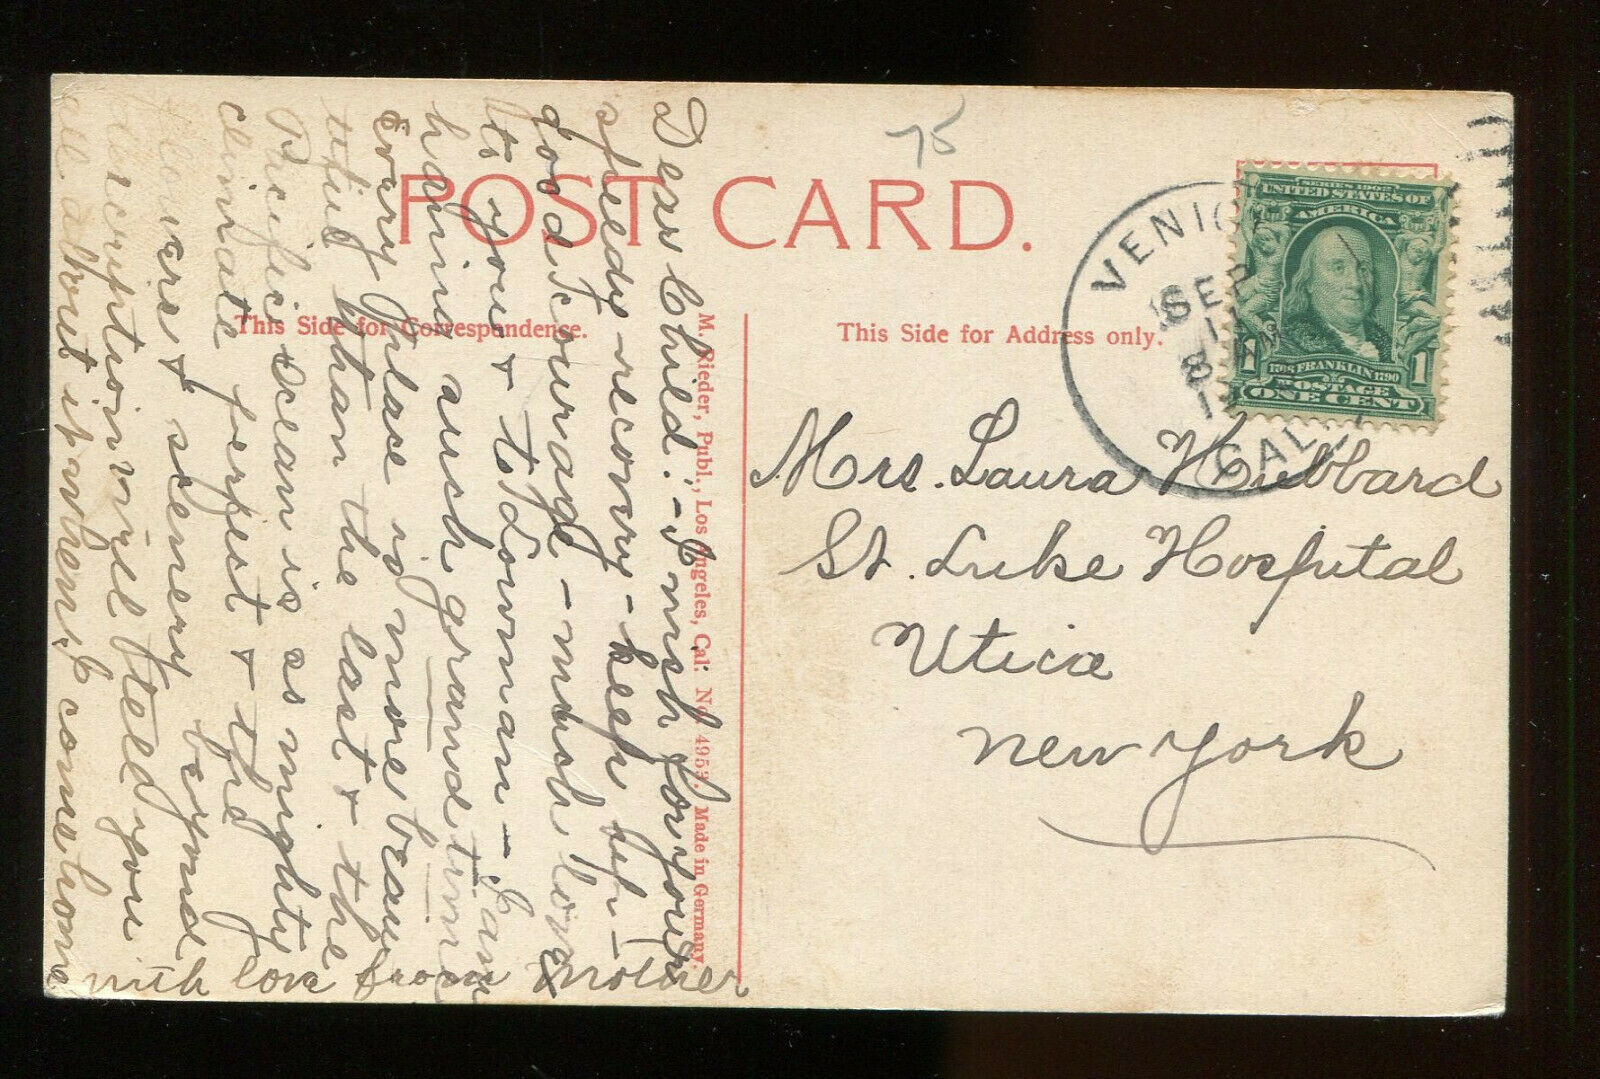 75
POST CARD.
This Side for Correspondence.
This Side for Address only.
M. Rieder, Publ., Los Angeles, Cal. No. 4953. Made in Germany.
VENICE
SEP
11
8 AM
CAL.
SERIES 1902
UNITED STATES OF
AMERICA
1 1
1706 FRANKLIN 1790
POSTAGE
ONE CENT
Mrs. Laura Hubbard
St. Luke Hospital
Utica
New York
Dear Child:- I wish for your
speedy recovery - keep up -
good courage - much love
to you & to Downman - I am
having such grand time
Every place is more beau
tiful than the last & the
Pacific Ocean is as mighty
climate perfect & the
flowers & scenery beyond
description will tell you
all about it when I come home
with love from Mother